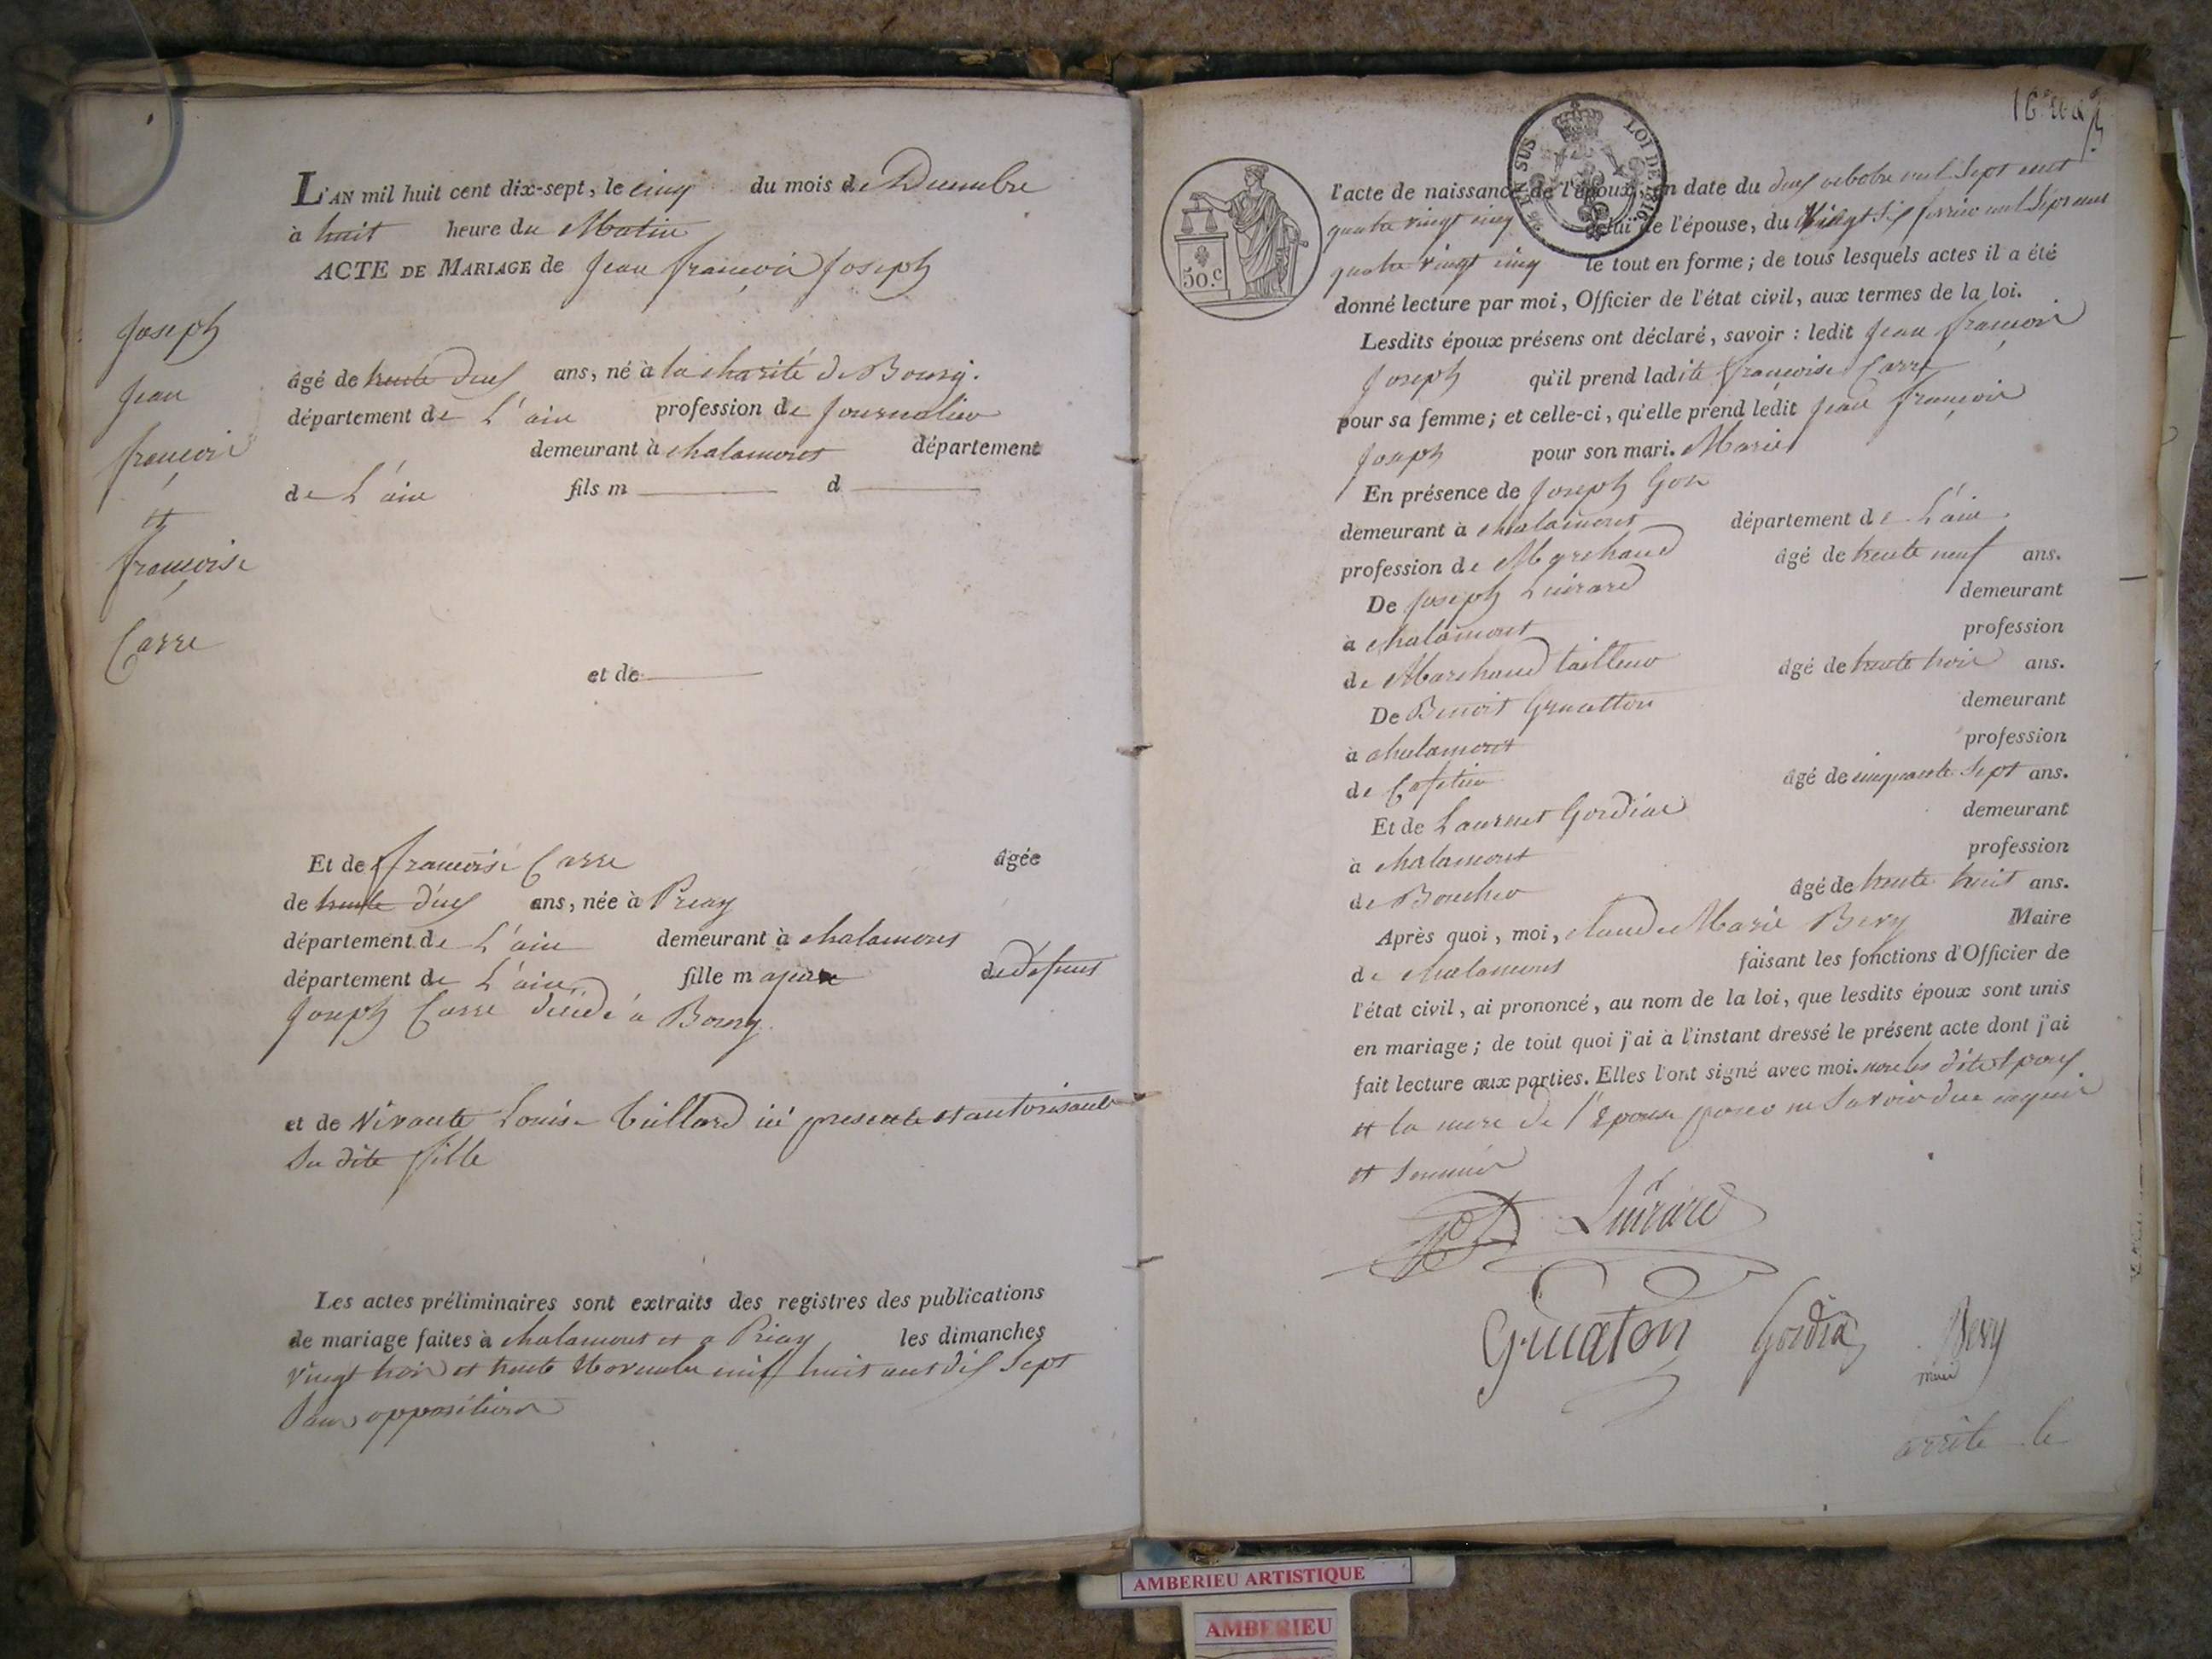 Joseph
Jean
françois
et
françoise
Carre
L'AN mil huit cent dix-sept, le cinq du mois de Decembre
à huit heure du Matin
ACTE DE MARIAGE de Jean françois Joseph
âgé de trente deux ans, né à la charité de Bourg.
département de L'ain profession de Journalier
demeurant à chalamont département
de L'ain fils m d
et de
Et de françoise Carre âgée
de trente deux ans, née à Priay
département de L'ain demeurant à chalamont
département de L'ain, fille majeure de defunt
Joseph Carre décédé à Bourg.
et de vivante Louise Tuillard ici presente et autorisante
Sa dite fille
Les actes préliminaires sont extraits des registres des publications
de mariage faites à chalamont et a Priay les dimanches
vingt trois et trente Novembre mil huit cent dix Sept
Sans opposition
LOI DE 1816.
EN SUS
50.c
l'acte de naissance de l'époux, en date du deux octobre mil Sept cent
quatre vingt cinq celui de l'épouse, du vingt Six fevrier mil Sept cent
quatre vingt cinq le tout en forme; de tous lesquels actes il a été
donné lecture par moi, Officier de l'état civil, aux termes de la loi.
Lesdits époux présens ont déclaré, savoir : ledit Jean françois
Joseph qu'il prend ladite françoise Carre
pour sa femme; et celle-ci, qu'elle prend ledit Jean françois
Joseph pour son mari.
En présence de Joseph Gon
demeurant à chalamont département de L'ain.
profession de Marchand âgé de trente neuf ans.
De Joseph Luirard demeurant
à chalamont profession
de Marchand tailleur âgé de trente trois ans.
De Benoit Gruatton demeurant
à chalamont profession
de Cafetier âgé de cinquante Sept ans.
Et de Laurent Gordiat demeurant
à chalamont profession
de Boucher âgé de trente huit ans.
Après quoi, moi, claude Marie Bevy Maire
de chalamont faisant les fonctions d'Officier de
l'état civil, ai prononcé, au nom de la loi, que lesdits époux sont unis
en mariage; de tout quoi j'ai à l'instant dressé le présent acte dont j'ai
fait lecture aux parties. Elles l'ont signé avec moi. non les dits Epoux
et la mere de l'Epouse pour ne Savoir de ce enquis
et Sommés
Luirard
Gruaton Gordia Bevy
maire
arrêté le
AMBERIEU ARTISTIQUE
AMBERIEU